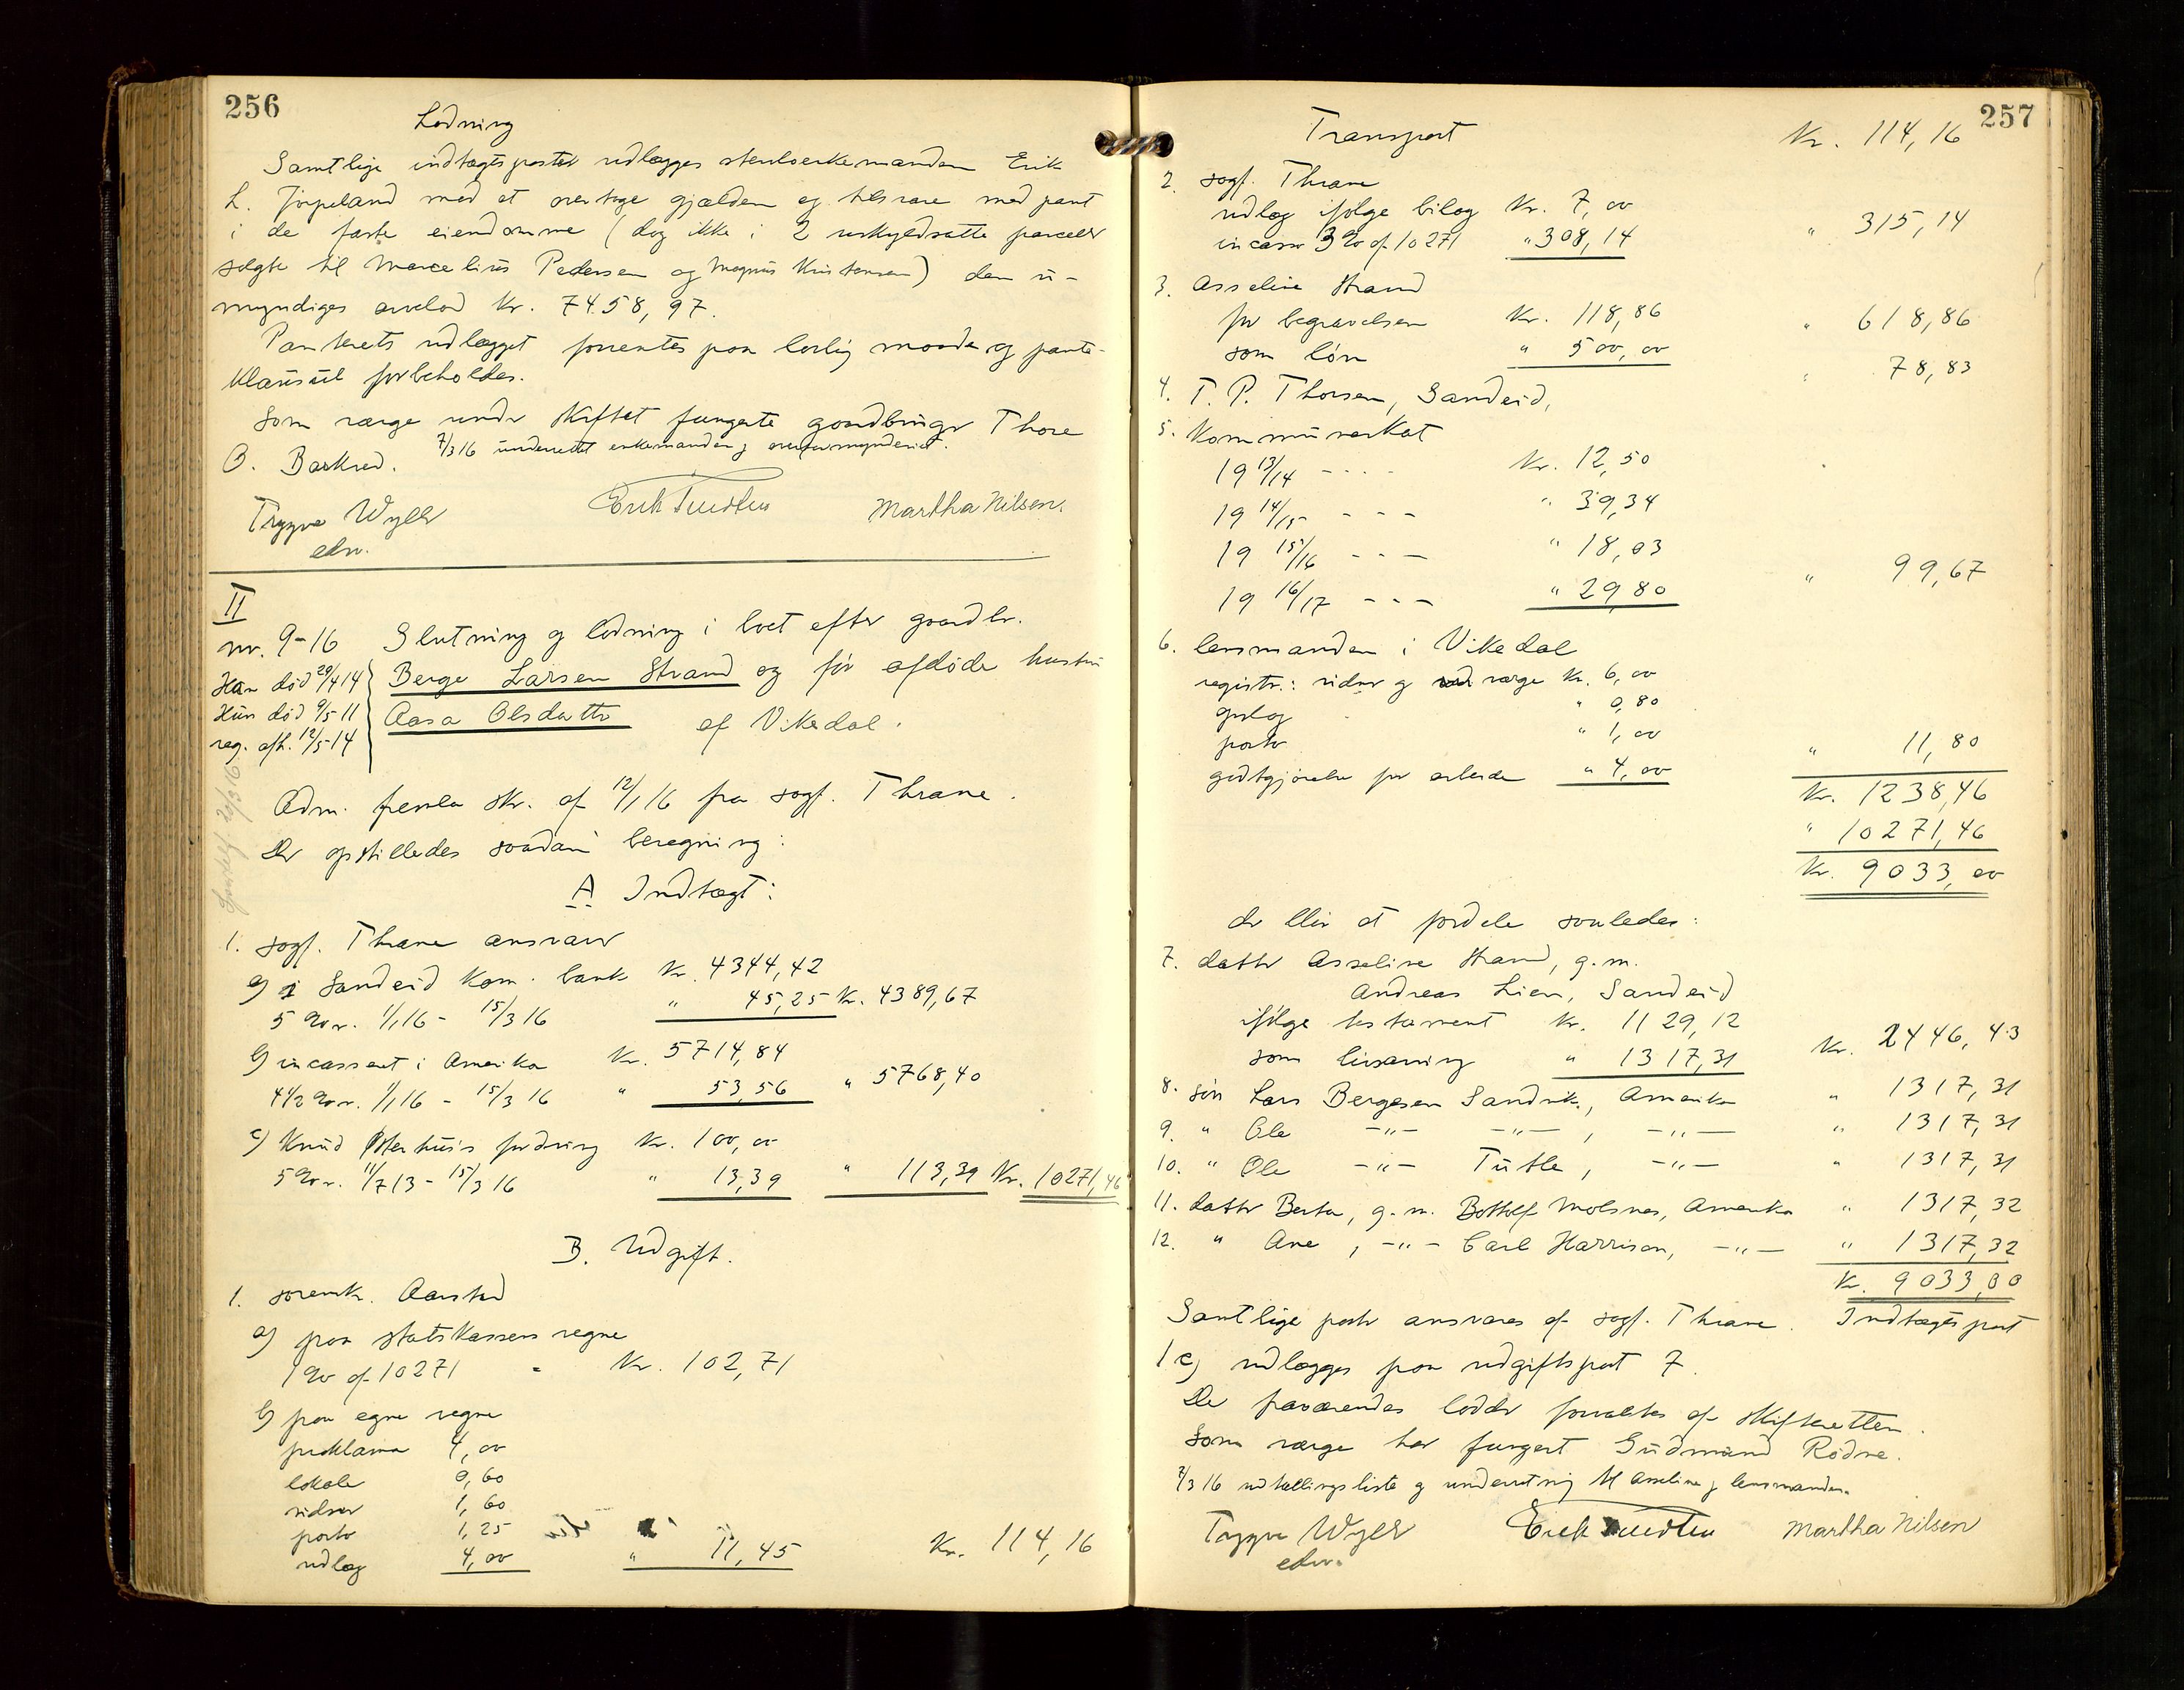 256
Lodning
Samtlige indtægtsposter udlægges stenhverkemanden Erik
L. Jørpeland mod at overtage gjælden og tilsvare med pant
i de faste eiendomme (dog ikke i 2 uskyldsatte parceller
solgte til Marcelius Pedersen og Magnus Kristensen) den u-
myndiges arvelod Kr. 7458,97.
Panterets udlægget forrentes paa lovlig maade og pante-
klausul forbeholdes.
Som værge under skiftet fungerte gaardbruger Thore
O. Barkved. 7/3 16 underrettet enkemanden og overformynderiet.
Trygve Wyller Erik Tuedten Martha Nilsen.
edv.
II
nr. 9-16 Slutning og lodning i boet efter gaardbr.
Han død 29/4 14 Berge Larsen Strand og før afdøde hustru
Hun død 9/5-11 Aasa Olsdatter af Vikedal.
reg. afh. 12/5-14
Adm. fremla skr. af 12/1 16 fra sagf. Thrane.
Der opstilledes saadan beregning:
A Indtægt:
1. sagf. Thrane ansvarer
a) i Sandeid kom. bank Kr. 4344,42
5 % r. 1/1 16 - 15/3 16 " 45,25 Kr. 4389,67
b) incassert i Amerika Kr. 5714,84
4 1/2 % r. 1/1 16 - 15/3 16 " 53,56 " 5768,40
c) Knud Østerhus's fordring Kr. 100,00
5 % r. 11/7 13 - 15/3 16 " 13,39 " 113,39 Kr. 10271,46
B. Udgift.
1. sorensk. Aarstad
a) paa statskassens regne
1 % af 10271 - Kr. 102,71
b) paa egne regne
proklama 4,00
lokale 0,60
vidner 1,60
porto 1,25
udlæg 4,00 " 11,45 Kr. 114,16
257
Transport Kr. 114,16
2. sagf. Thrane
udlæg ifølge bilag Kr. 7,00
incasso 3 % af 10271 " 308,14 " 315,14
3. Asseline Strand
for begravelsen Kr. 118,86
som løn " 500,00 " 618,86
4. T. P. Thorsen, Sandeid, " 78,83
5. Kommuneskat
19 13/14 - - - - Kr. 12,50
19 14/15 - - - " 39,34
19 15/16 - - - " 18,03
19 16/17 - - - " 29,80 " 99,67
6. lensmanden i Vikedal
registr.: vidner og værge Kr. 6,00
opslag " 0,80
porto " 1,00
godtgjørelse for arbeide " 4,00 " 11,80
Kr. 1238,46
" 10271,46
Kr. 9033,00
der blir at fordele saaledes:
7. datter Asseline Strand, g.m.
Andreas Lien, Sandeid
ifølge testament Kr. 1129,12
som livsarving " 1317,31 Kr. 2446,43
8. søn Lars Bergesen Sandvik, Amerika " 1317,31
9. " Ole -"- -"-, -"- " 1317,31
10. " Ole -"- Tutle, -"- " 1317,31
11. datter Berta, g.m. Bottolf Molsnes, Amerika " 1317,32
12. " Ane, -"- Carl Harrison, -"- " 1317,32
Kr. 9033,00
Samtlige poster ansvares af sagf. Thrane. Indtægtspost
1 c) udlægges paa udgiftspost 7.
De fraværendes lodder forvaltes af skifteretten.
Som værge har fungert Gudmund Rødne.
7/3 16 udtællingsliste og underretning til Asseline og lensmanden.
Trygve Wyller Erik Tuedten Martha Nilsen
edv.